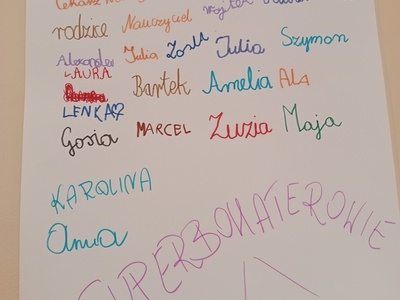 Lekarz
rodzice Nauczyciel Wojtek
Aleksander Julia Zosia Julia Szymon
LAURA
Bartek Amelia Ala
LENKA
Gosia MARCEL Zuzia Maja
KAROLINA
Anna
SUPERBOHATEROWIE